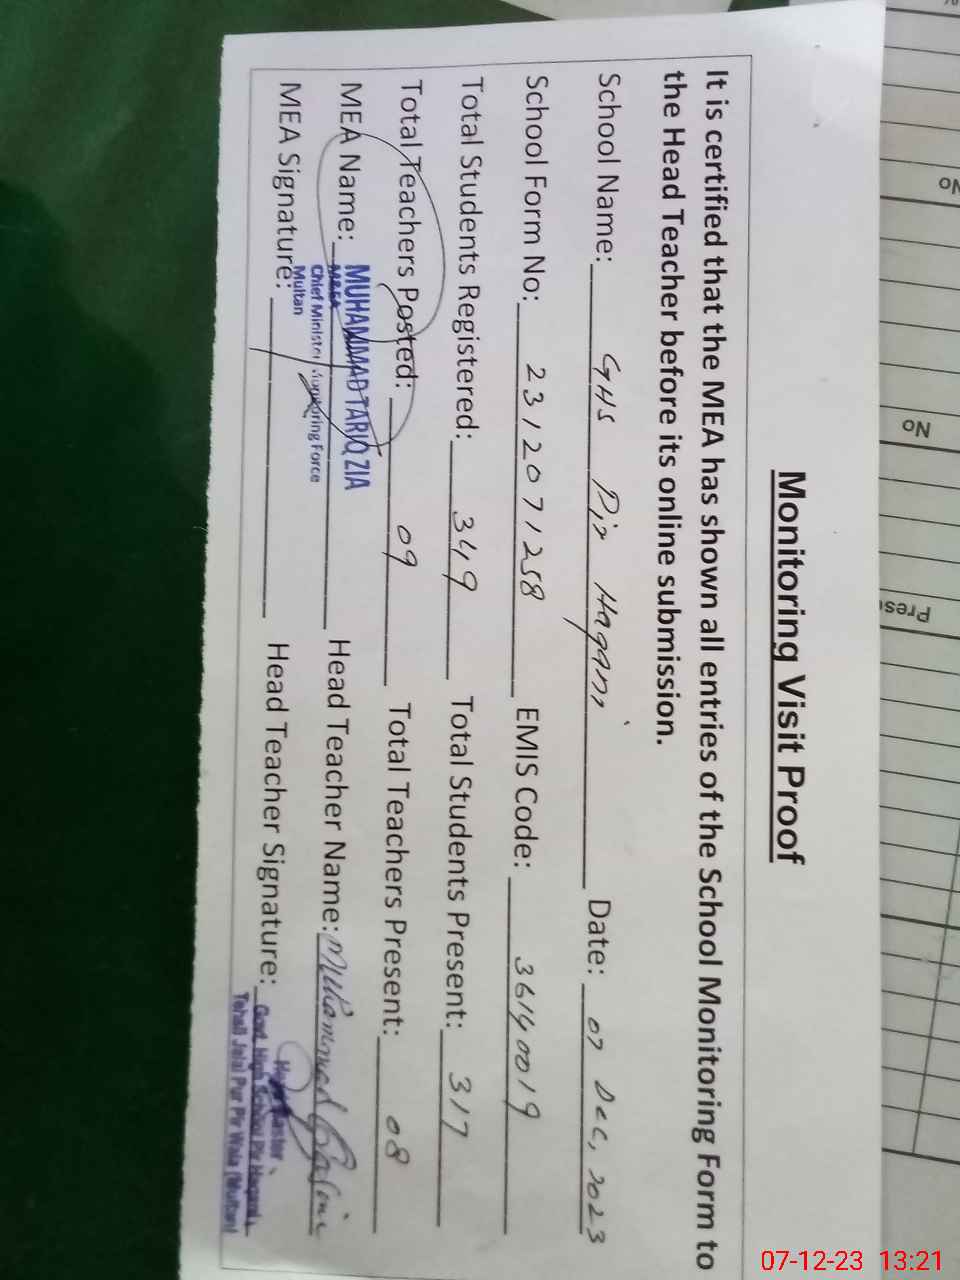 Monitoring Visit Proof
It is certified that the MEA has shown all entries of the School Monitoring Form to
the Head Teacher before its online submission.
School Name: GHS Pir Haqani Date: 07 Dec, 2023
School Form No: 2312071258 EMIS Code: 36140019
Total Students Registered: 349 Total Students Present: 317
Total Teachers Posted: 09 Total Teachers Present: 08
MEA Name: MUHAMMAD TARIQ ZIA Head Teacher Name: Muhammad
M&EA
Chief Minister Monitoring Force
Multan
MEA Signature: Head Teacher Signature:
Head Master
Govt. High School Pir Haqani
Tehsil Jalal Pur Pir Wala (Multan)
No
No
07-12-23 13:21